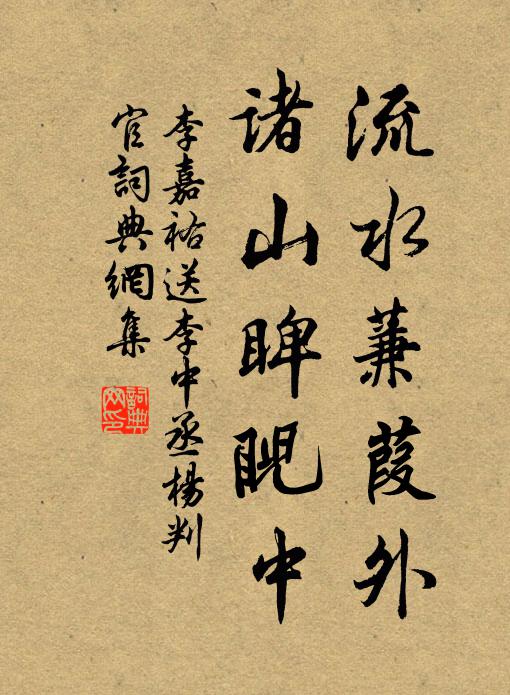 流水蒹葭外
诸山睥睨中
李嘉祐送李中丞楊判
官詞典網集
詞典
网印